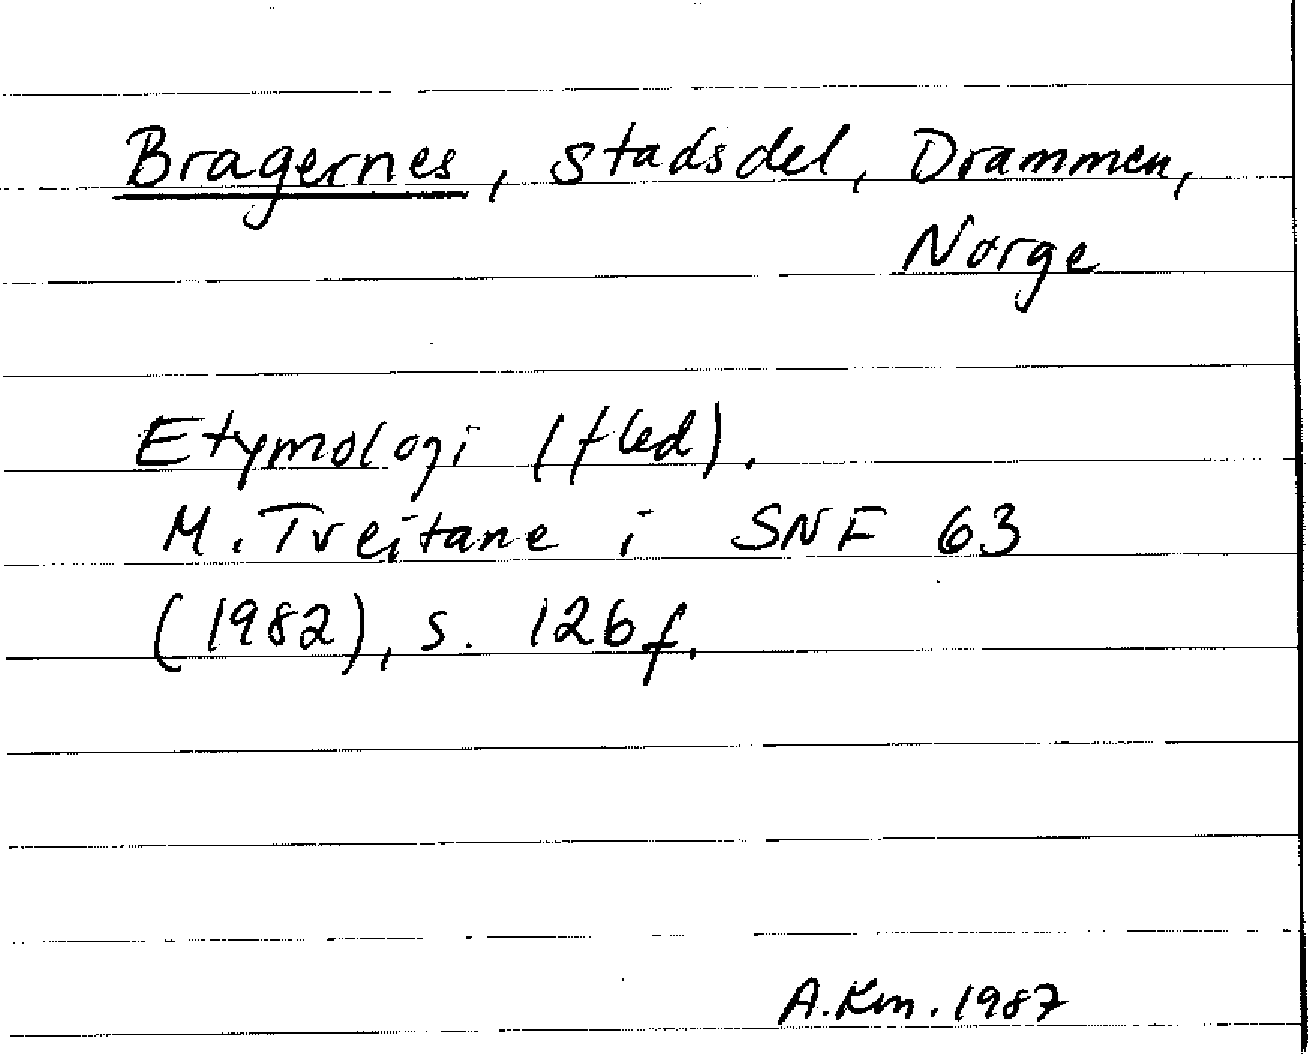 Bragernes, stadsdel, Drammen,
Norge
Etymologi (fled).
M. Tveitane i SNF 63
(1982), s. 126 f.
A.Km. 1987